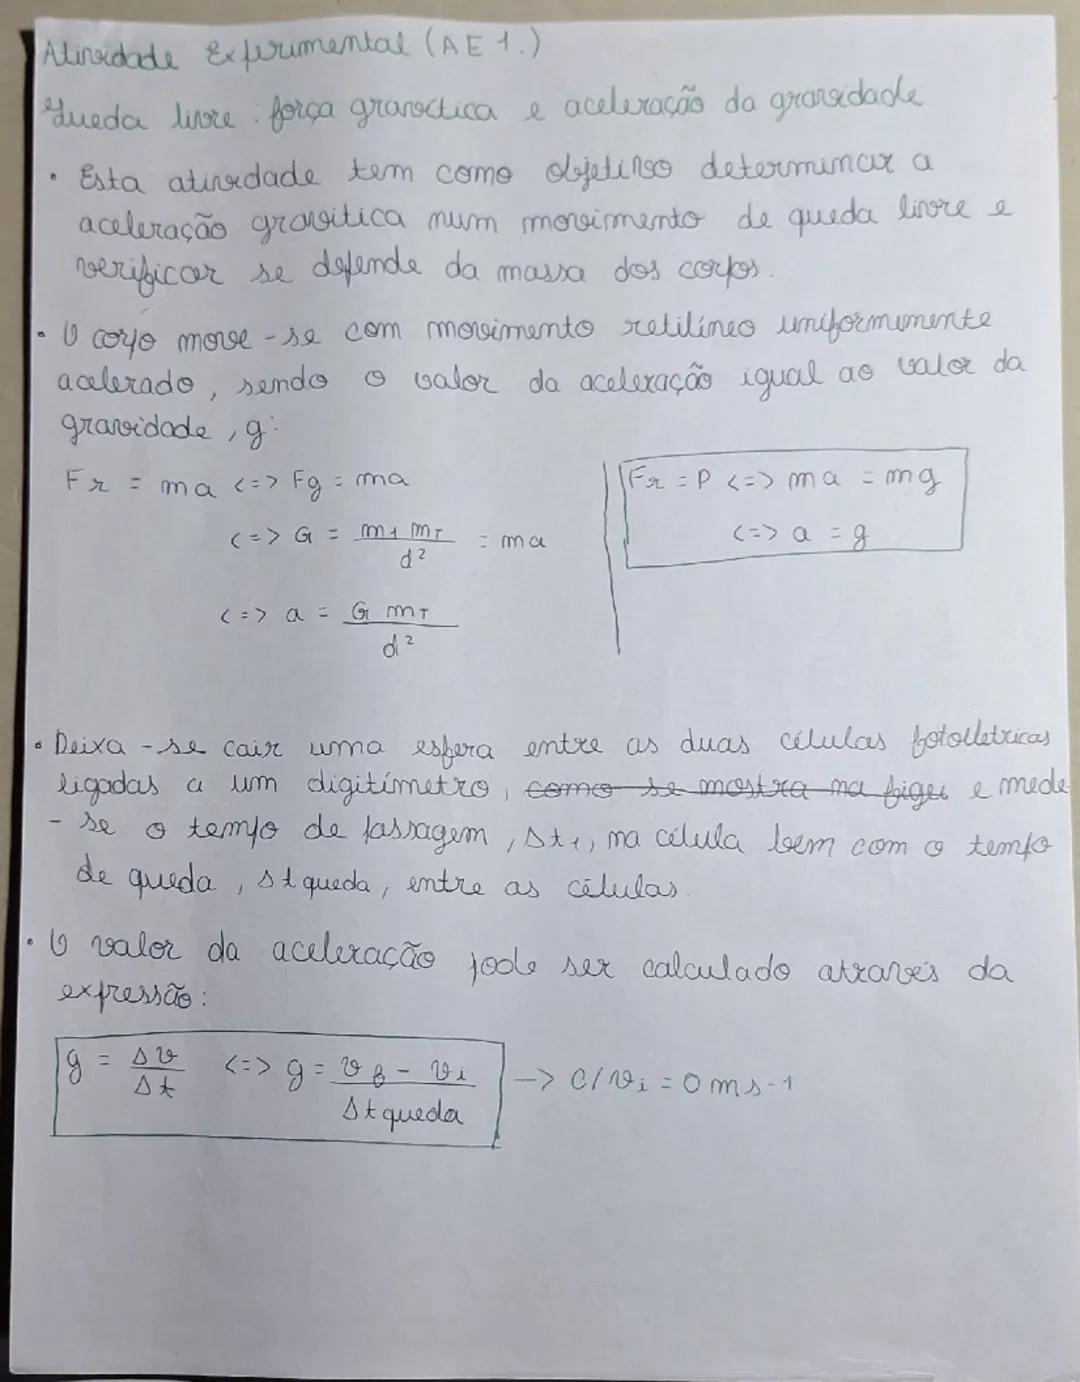 Atividade Experimental (AE 1.)
Queda livre : força gravítica e aceleração da gravidade
• Esta atividade tem como objetivo determinar a
aceleração gravitica num movimento de queda livre e
verificar se depende da massa dos corpos.
• O corpo move-se com movimento retilíneo uniformemente
acelerado, sendo o valor da aceleração igual ao valor da
gravidade, g:
Fr = ma <=> Fg = ma
<=> G = m1 mT / d² = ma
<=> a = G mT / d²
Fr = P <=> ma = mg
<=> a = g
• Deixa-se cair uma esfera entre as duas células fotoeletricas
ligadas a um digitímetro, como se mostra na figu e mede
- se o tempo de passagem, Δt1, na célula bem com o tempo
de queda, Δt queda, entre as células.
• O valor da aceleração pode ser calculado através da
expressão:
g = Δv / Δt <=> g = vf - vi / Δt queda -> C/ vi = 0 ms-1